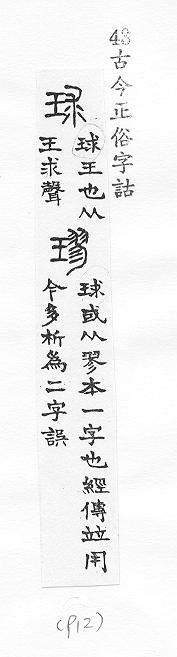 48
古今正俗字詁
球
球王也从
王求聲
璆
球或从翏本一字也經傳並用
今多析為二字誤
(P12)